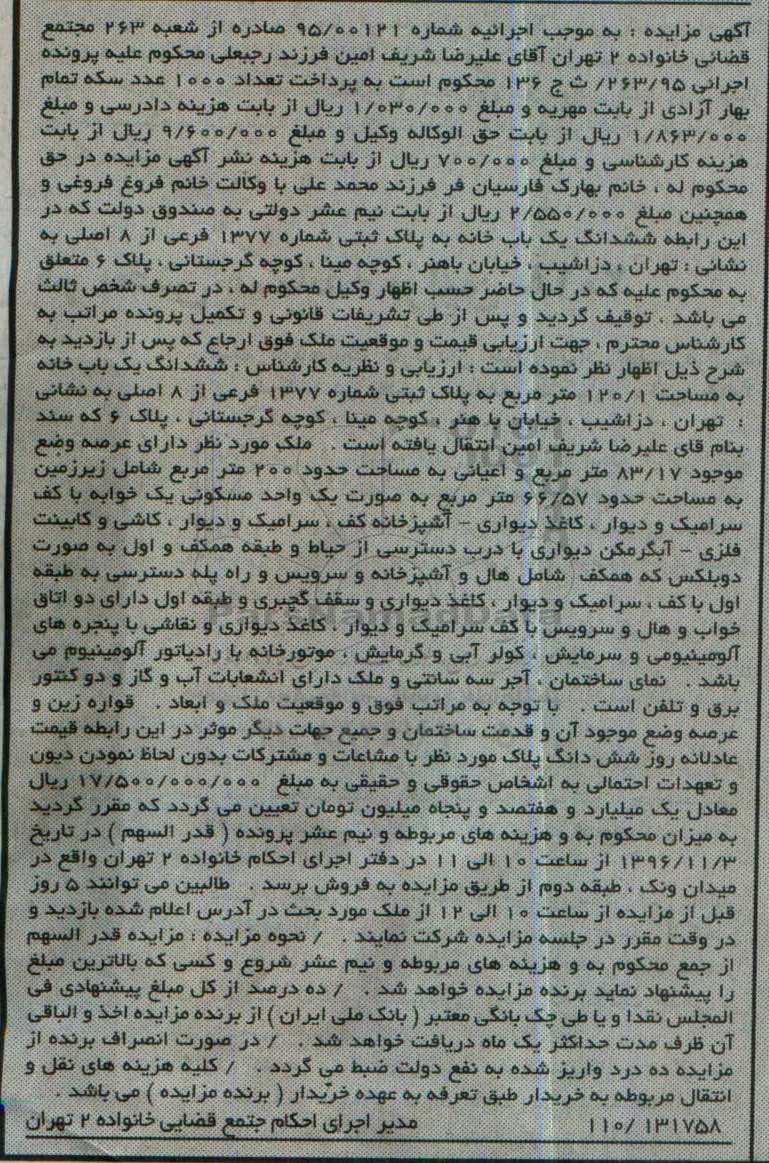 آگهی مزایده : به موجب اجرائیه شماره ۹۵/۰۰۱۲۱ صادره از شعبه ۲۶۳ مجتمع
قضائی خانواده ۲ تهران آقای علیرضا شریف امین فرزند رجبعلی محکوم علیه پرونده
اجرائی ۲۶۳/۹۵/ ث ج ۱۳۶ محکوم است به پرداخت تعداد ۱۰۰۰ عدد سکه تمام
بهار آزادی از بابت مهریه و مبلغ ۱/۰۳۰/۰۰۰ ریال از بابت هزینه دادرسی و مبلغ
۱/۸۶۳/۰۰۰ ریال از بابت حق الوکاله وکیل و مبلغ ۹/۶۰۰/۰۰۰ ریال از بابت
هزینه کارشناسی و مبلغ ۷۰۰/۰۰۰ ریال از بابت هزینه نشر آگهی مزایده در حق
محکوم له ، خانم بهارک فارسیان فر فرزند محمد علی با وکالت خانم فروغ فروغی و
همچنین مبلغ ۲/۵۵۰/۰۰۰ ریال از بابت نیم عشر دولتی به صندوق دولت که در
این رابطه ششدانگ یک باب خانه به پلاک ثبتی شماره ۱۳۷۷ فرعی از ۸ اصلی به
نشانی : تهران ، دزاشیب ، خیابان باهنر ، کوچه مینا ، کوچه گرجستانی ، پلاک ۶ متعلق
به محکوم علیه که در حال حاضر حسب اظهار وکیل محکوم له ، در تصرف شخص ثالث
می باشد ، توقیف گردید و پس از طی تشریفات قانونی و تکمیل پرونده مراتب به
کارشناس محترم ، جهت ارزیابی قیمت و موقعیت ملک فوق ارجاع که پس از بازدید به
شرح ذیل اظهار نظر نموده است : ارزیابی و نظریه کارشناس : ششدانگ یک باب خانه
به مساحت ۱۲۰/۱ متر مربع به پلاک ثبتی شماره ۱۳۷۷ فرعی از ۸ اصلی به نشانی
: تهران ، دزاشیب ، خیابان با هنر ، کوچه مینا ، کوچه گرجستانی ، پلاک ۶ که سند
بنام قای علیرضا شریف امین انتقال یافته است . ملک مورد نظر دارای عرصه وضع
موجود ۸۳/۱۷ متر مربع و اعیانی به مساحت حدود ۲۰۰ متر مربع شامل زیرزمین
به مساحت حدود ۶۶/۵۷ متر مربع به صورت یک واحد مسکونی یک خوابه با کف
سرامیک و دیوار ، کاغذ دیواری - آشپزخانه کف ، سرامیک و دیوار ، کاشی و کابینت
فلزی - آبگرمکن دیواری با درب دسترسی از حیاط و طبقه همکف و اول به صورت
دوبلکس که همکف شامل هال و آشپزخانه و سرویس و راه پله دسترسی به طبقه
اول با کف ، سرامیک و دیوار ، کاغذ دیواری و سقف گچبری و طبقه اول دارای دو اتاق
خواب و هال و سرویس با کف سرامیک و دیوار ، کاغذ دیواری و نقاشی با پنجره های
آلومینیومی و سرمایش ، کولر آبی و گرمایش ، موتورخانه با رادیاتور آلومینیوم می
باشد . نمای ساختمان ، آجر سه سانتی و ملک دارای انشعابات آب و گاز و دو کنتور
برق و تلفن است . با توجه به مراتب فوق و موقعیت ملک و ابعاد . قواره زین و
عرصه وضع موجود آن و قدمت ساختمان و جمیع جهات دیگر موثر در این رابطه قیمت
عادلانه روز شش دانگ پلاک مورد نظر با مشاعات و مشترکات بدون لحاظ نمودن دیون
و تعهدات احتمالی به اشخاص حقوقی و حقیقی به مبلغ ۱۷/۵۰۰/۰۰۰/۰۰۰ ریال
معادل یک میلیارد و هفتصد و پنجاه میلیون تومان تعیین می گردد که مقرر گردید
به میزان محکوم به و هزینه های مربوطه و نیم عشر پرونده ( قدر السهم ) در تاریخ
۱۳۹۶/۱۱/۳ از ساعت ۱۰ الی ۱۱ در دفتر اجرای احکام خانواده ۲ تهران واقع در
میدان ونک ، طبقه دوم از طریق مزایده به فروش برسد . طالبین می توانند ۵ روز
قبل از مزایده از ساعت ۱۰ الی ۱۲ از ملک مورد بحث در آدرس اعلام شده بازدید و
در وقت مقرر در جلسه مزایده شرکت نمایند . / نحوه مزایده : مزایده قدر السهم
از جمع محکوم به و هزینه های مربوطه و نیم عشر شروع و کسی که بالاترین مبلغ
را پیشنهاد نماید برنده مزایده خواهد شد . / ده درصد از کل مبلغ پیشنهادی فی
المجلس نقدا و یا طی چک بانگی معتبر ( بانک ملی ایران ) از برنده مزایده اخذ و الباقی
آن ظرف مدت حداکثر یک ماه دریافت خواهد شد . / در صورت انصراف برنده از
مزایده ده درد واریز شده به نفع دولت ضبط می گردد . / کلیه هزینه های نقل و
انتقال مربوطه به خریدار طبق تعرفه به عهده خریدار ( برنده مزایده ) می باشد .
۱۱۰/ ۱۳۱۷۵۸ مدیر اجرای احکام جتمع قضایی خانواده ۲ تهران